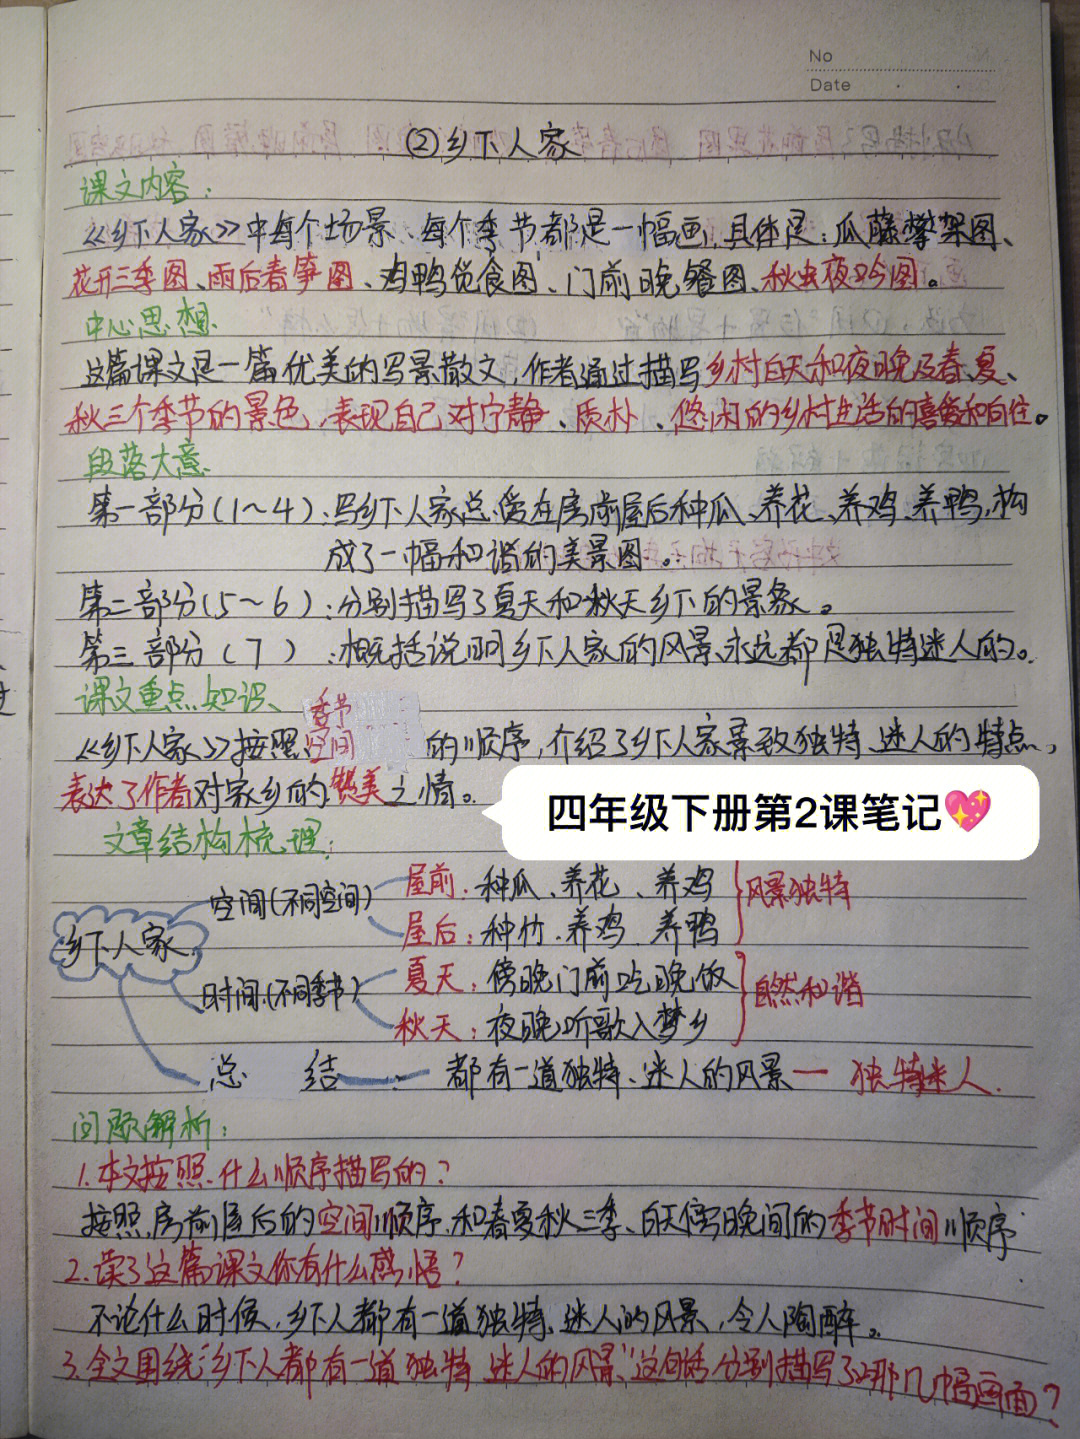 No
Date
②乡下人家
课文内容:
《乡下人家》中每个场景、每个季节都是一幅画,具体是:瓜藤攀架图、
花开三季图、雨后春笋图、鸡鸭觅食图、门前晚餐图、秋虫夜吟图。
中心思想
这篇课文是一篇优美的写景散文,作者通过描写乡村白天和夜晚及春、夏、
秋三个季节的景色,表现自己对宁静、质朴、悠闲的乡村生活的喜爱和向往。
段落大意
第一部分(1~4):写乡下人家总爱在房前屋后种瓜、养花、养鸡、养鸭,构
成了一幅和谐的美景图。
第二部分(5~6):分别描写了夏天和秋天乡下的景象。
第三部分(7):概括说明乡下人家的风景永远都是独特迷人的。
课文重点知识、
季节
《乡下人家》按照空间的顺序,介绍了乡下人家景致独特、迷人的特点,
表达了作者对家乡的赞美之情。
四年级下册第2课笔记💖
文章结构梳理:
屋前:种瓜、养花、养鸡
空间(不同空间)
风景独特
屋后:种竹、养鸡、养鸭
乡下人家
夏天:傍晚门前吃晚饭
时间(不同季节)
自然和谐
秋天:夜晚听歌入梦乡
总 结:都有一道独特、迷人的风景—独特迷人.
问题解析:
1.本文按照什么顺序描写的?
按照房前屋后的空间顺序和春夏秋三季、白天傍晚间的季节时间顺序
2.读了这篇课文你有什么感悟?
不论什么时候,乡下人都有一道独特、迷人的风景,令人陶醉。
3.全文围绕“乡下人都有一道独特迷人的风景”这句话分别描写了哪几幅画面?